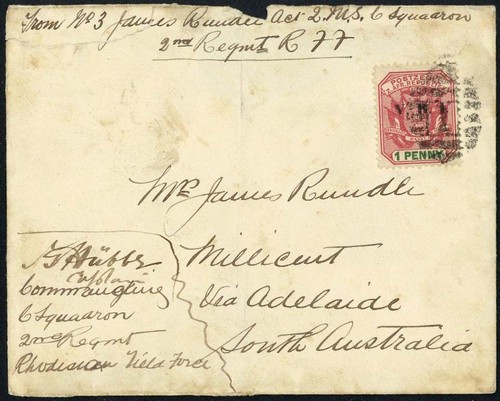 From No 3 James Rundle Act 2. M.S. C Squadron
2nd Regmt R FF
POSTZEGEL
V.R.I.
1 PENNY
Mr James Rundle
Millicent
Via Adelaide
South Australia
Hübbe
Captain
Commanding
C Squadron
2nd Regmt
Rhodesian Field Force